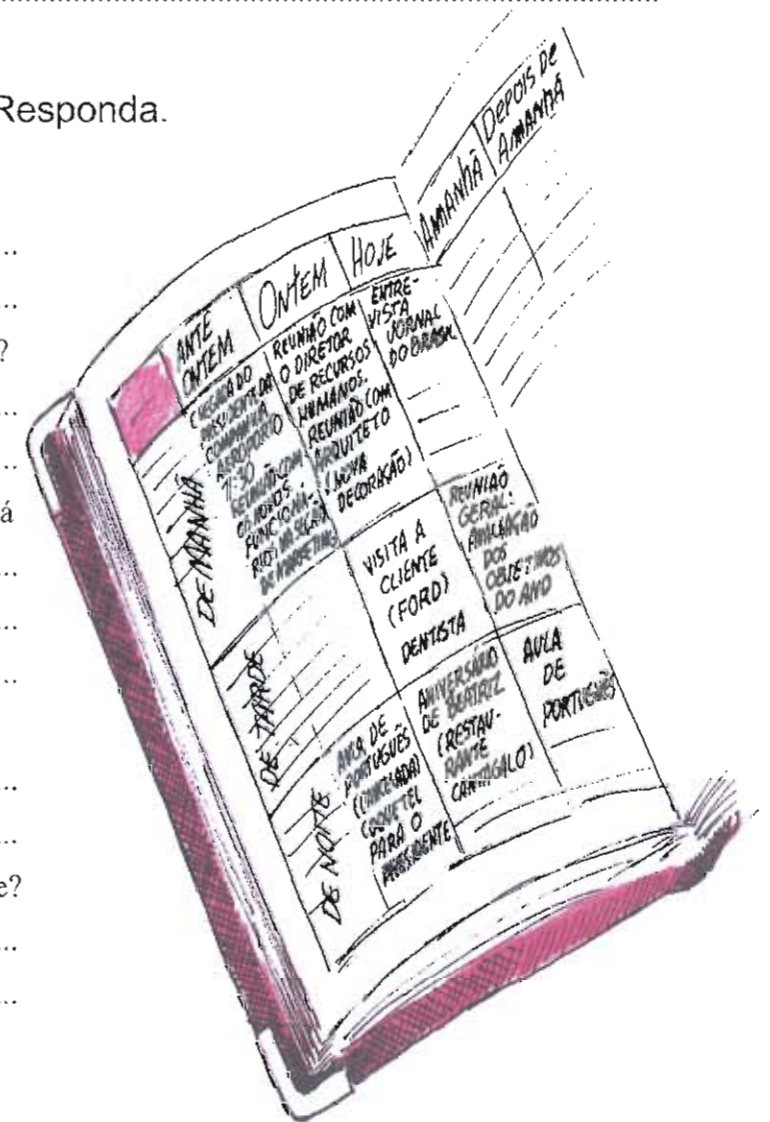 Responda.
?
á
e?
ANTE
ONTEM
ONTEM
HOJE
AMANHÃ
DEPOIS DE
AMANHÃ
DE MANHÃ
CHEGADA DO
PRESIDENTE DA
COMPANHIA
AEROPORTO
REUNIÃO COM
OS NOVOS
FUNCIONÁ-
RIOS NA
DE MARKETING
REUNIÃO COM
O DIRETOR
DE RECURSOS
HUMANOS.
REUNIÃO COM
ARQUITETO
(NOVA
DECORAÇÃO)
ENTRE-
VISTA
JORNAL
DO BRASIL
DE TARDE
VISITA A
CLIENTE
(FORD)
DENTISTA
REUNIÃO
GERAL:
AVALIAÇÃO
DOS
OBJETIVOS
DO ANO
DE NOITE
AULA DE
PORTUGUÊS
(CANCELADA)
COQUETEL
PARA O
PRESIDENTE
ANIVERSÁRIO
DE BEATRIZ
(RESTAU-
RANTE
CANTAGALO)
AULA
DE
PORTUGUÊS